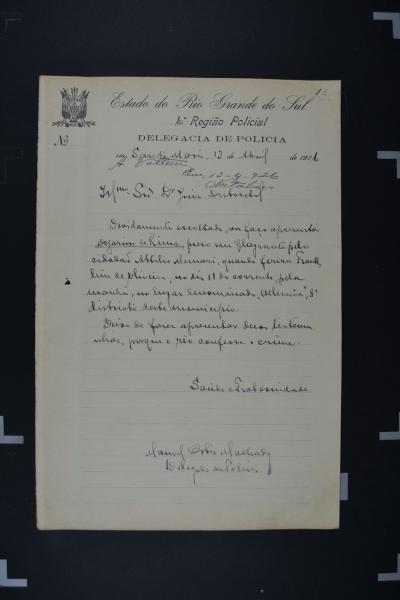 13
Estado do Rio Grande do Sul
1a. Região Policial
DELEGACIA DE POLICIA
No
em Santa Maria, 13 de Abril de 1926
A
Em 13-4-926
Illmo. Snr. Dr. Juiz Districtal
Devidamente escoltado, vos faço apresentar
de Lima, preso em flagrante pelo
cidadão Attilio, quando feriu Frank
lin de Oliveira, no dia 11 do corrente, pela
manhã, no lugar denominado, 8º
districto deste municipio.
Deixo de fazer apresentar duas testemu
nhas, porque o réo confessa o crime.
Saúde e Fraternidade
Manoel Machado
Delegado de Policia